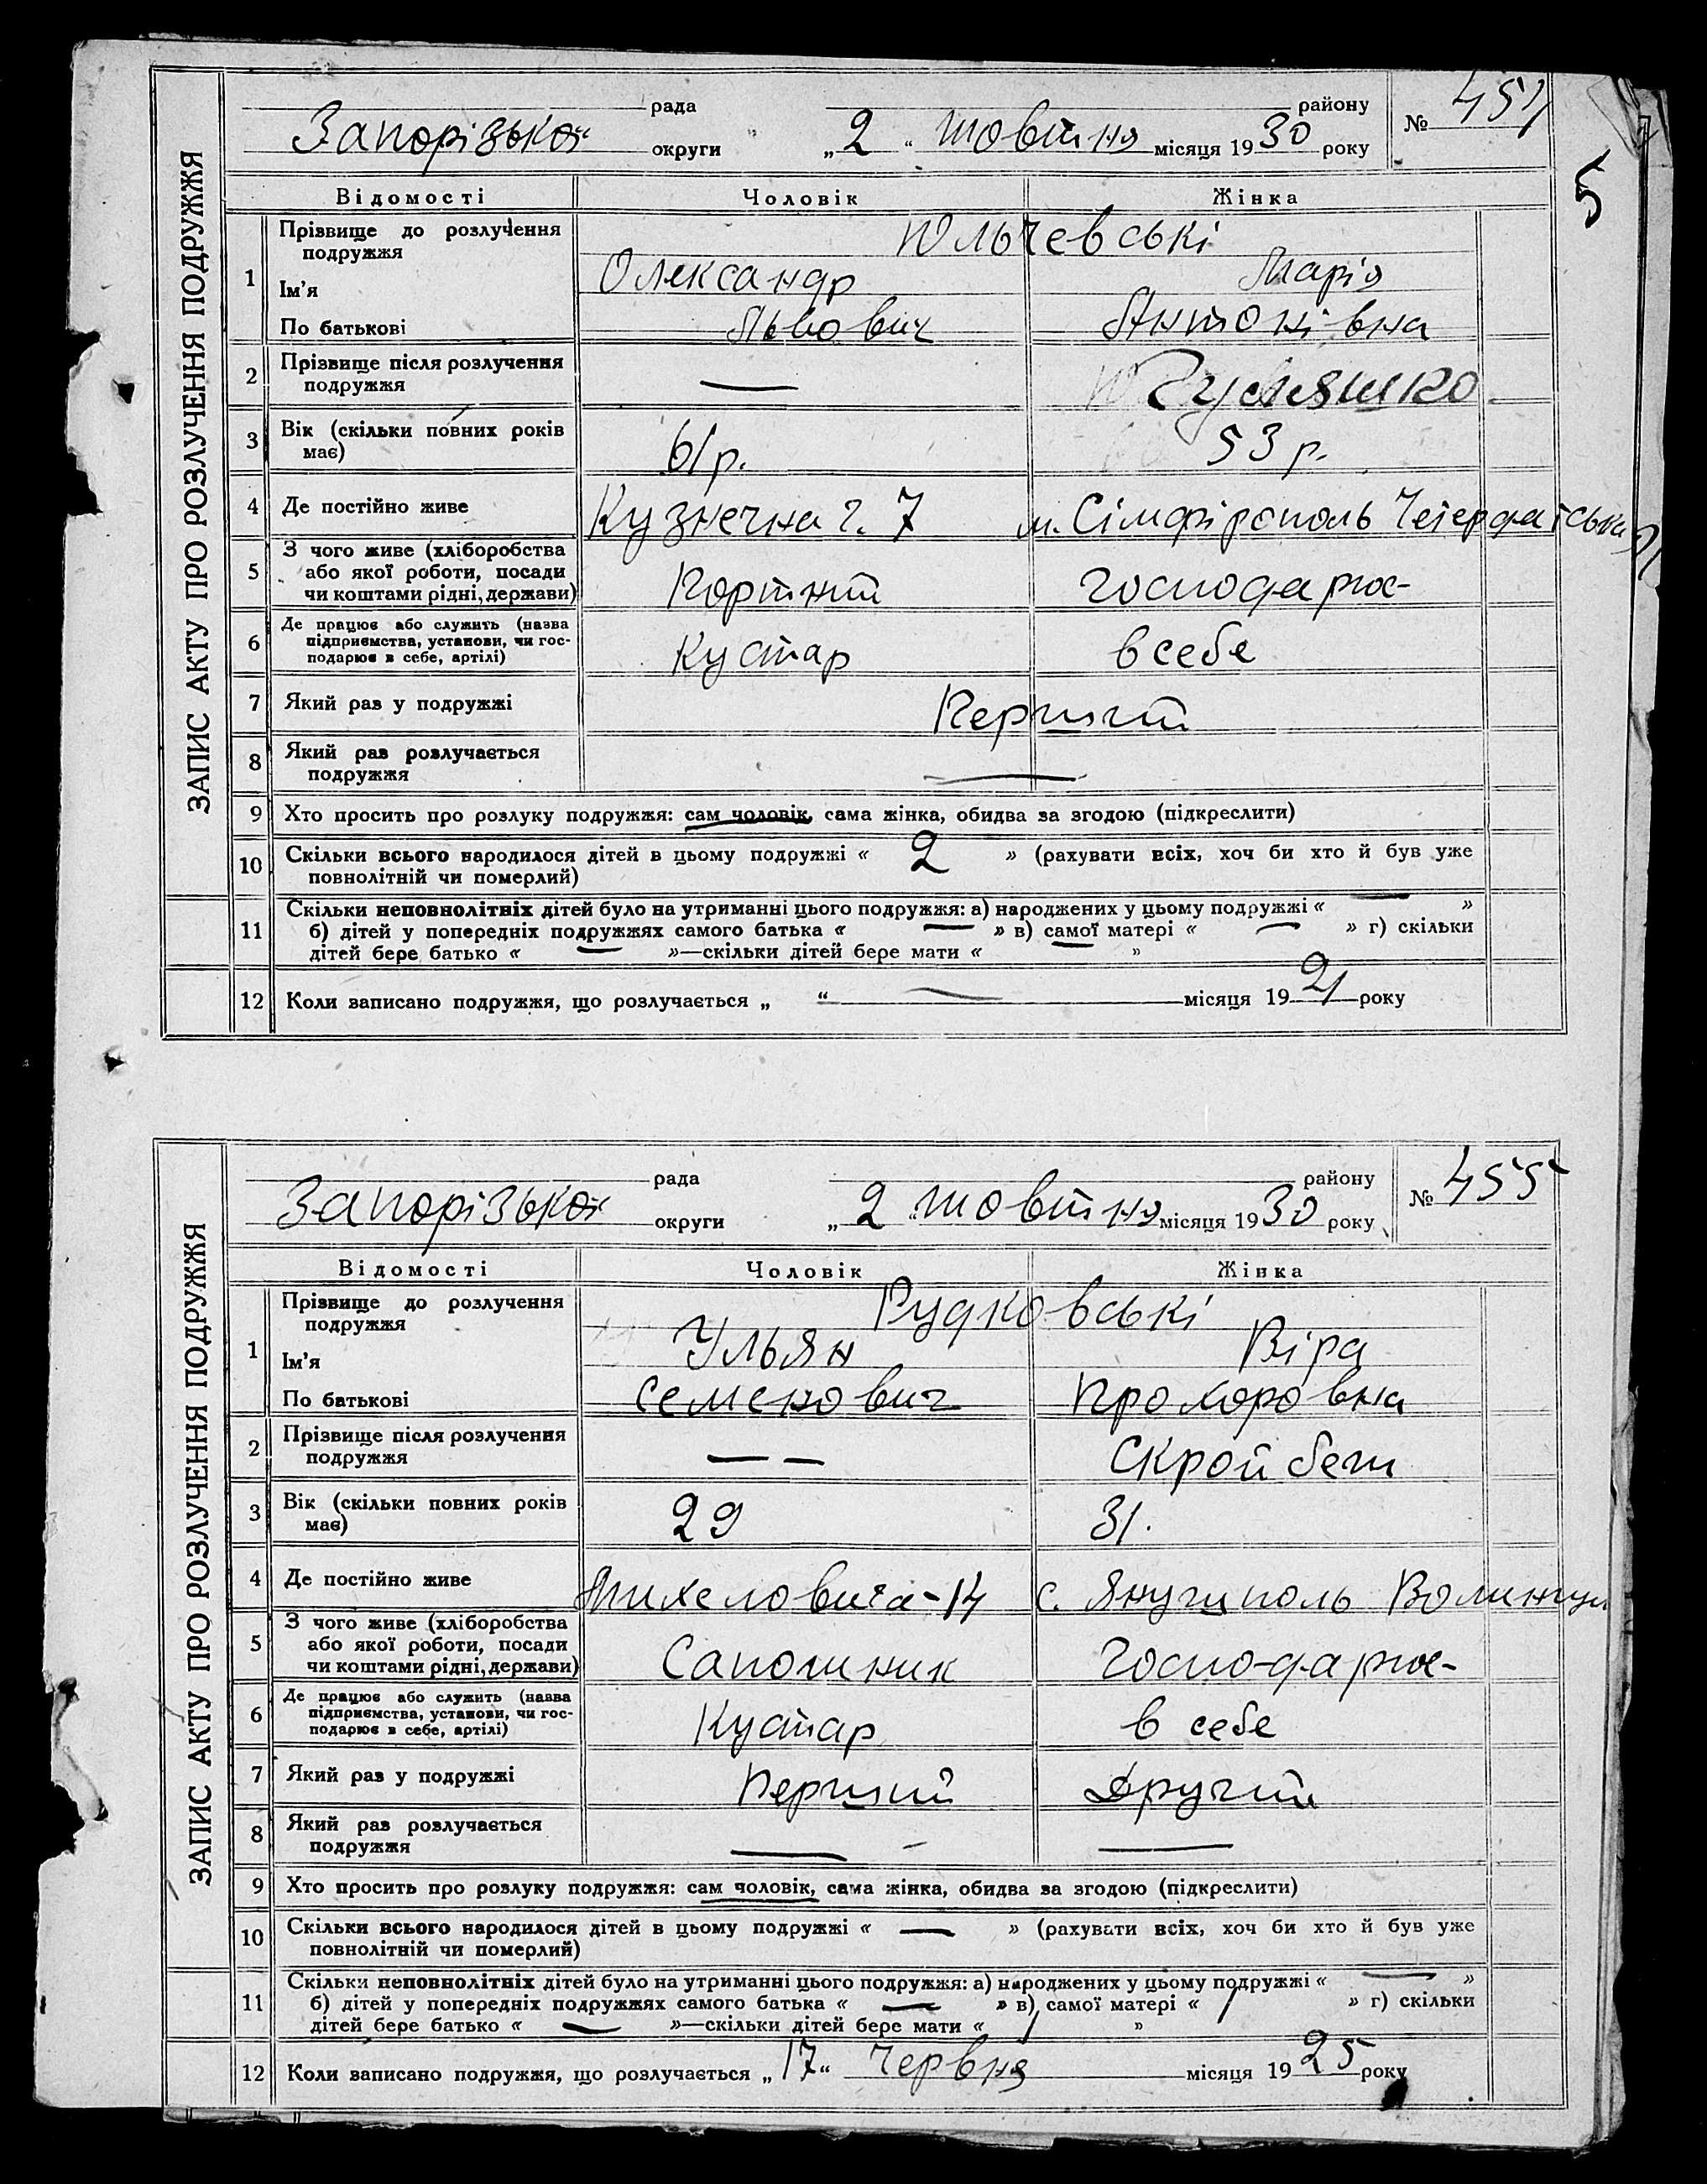 ЗАПИС АКТУ ПРО РОЗЛУЧЕННЯ ПОДРУЖЖЯ
рада району № 454
5
Запорізької округи „2“ Жовтня місяця 1930 року
Відомості Чоловік Жінка
1 Прізвище до розлучення подружжя Юльчевські
Ім'я Олександр Марія
По батькові Львович Антонівна
2 Прізвище після розлучення подружжя —
3 Вік (скільки повних років має) 61 р. 53 р.
4 Де постійно живе Кузнечна ч. 7 м. Сімфірополь
5 З чого живе (хліборобства або якої роботи, посади чи коштами рідні, держави) Портний господарює
6 Де працює або служить (назва підприємства, установи, чи господарює в себе, артілі) Кустар в себе
7 Який раз у подружжі Перший
8 Який раз розлучається подружжя —
9 Хто просить про розлуку подружжя: сам чоловік, сама жінка, обидва за згодою (підкреслити)
10 Скільки всього народилося дітей в цьому подружжі « 2 » (рахувати всіх, хоч би хто й був уже
повнолітній чи померлий)
11 Скільки неповнолітніх дітей було на утриманні цього подружжя: а) народжених у цьому подружжі « — »
б) дітей у попередніх подружжях самого батька « — » в) самої матері « — » г) скільки
дітей бере батько « — »—скільки дітей бере мати « — »
12 Коли записано подружжя, що розлучається „ “ — місяця 1921 року
ЗАПИС АКТУ ПРО РОЗЛУЧЕННЯ ПОДРУЖЖЯ
рада району № 455
Запорізької округи „2“ Жовтня місяця 1930 року
Відомості Чоловік Жінка
1 Прізвище до розлучення подружжя Рудковські
Ім'я Ульян Віра
По батькові Семенович Прохоровна
2 Прізвище після розлучення подружжя — — Скройбеш
3 Вік (скільки повних років має) 29 31.
4 Де постійно живе Михеловича-14 с. Янушполь
5 З чого живе (хліборобства або якої роботи, посади чи коштами рідні, держави) Сапожник господарює
6 Де працює або служить (назва підприємства, установи, чи господарює в себе, артілі) Кустар в себе
7 Який раз у подружжі Перший Другий
8 Який раз розлучається подружжя — —
9 Хто просить про розлуку подружжя: сам чоловік, сама жінка, обидва за згодою (підкреслити)
10 Скільки всього народилося дітей в цьому подружжі « — » (рахувати всіх, хоч би хто й був уже
повнолітній чи померлий)
11 Скільки неповнолітніх дітей було на утриманні цього подружжя: а) народжених у цьому подружжі « — »
б) дітей у попередніх подружжях самого батька « — » в) самої матері « 1 » г) скільки
дітей бере батько « — »—скільки дітей бере мати « 1 »
12 Коли записано подружжя, що розлучається „17“ Червня місяця 1925 року